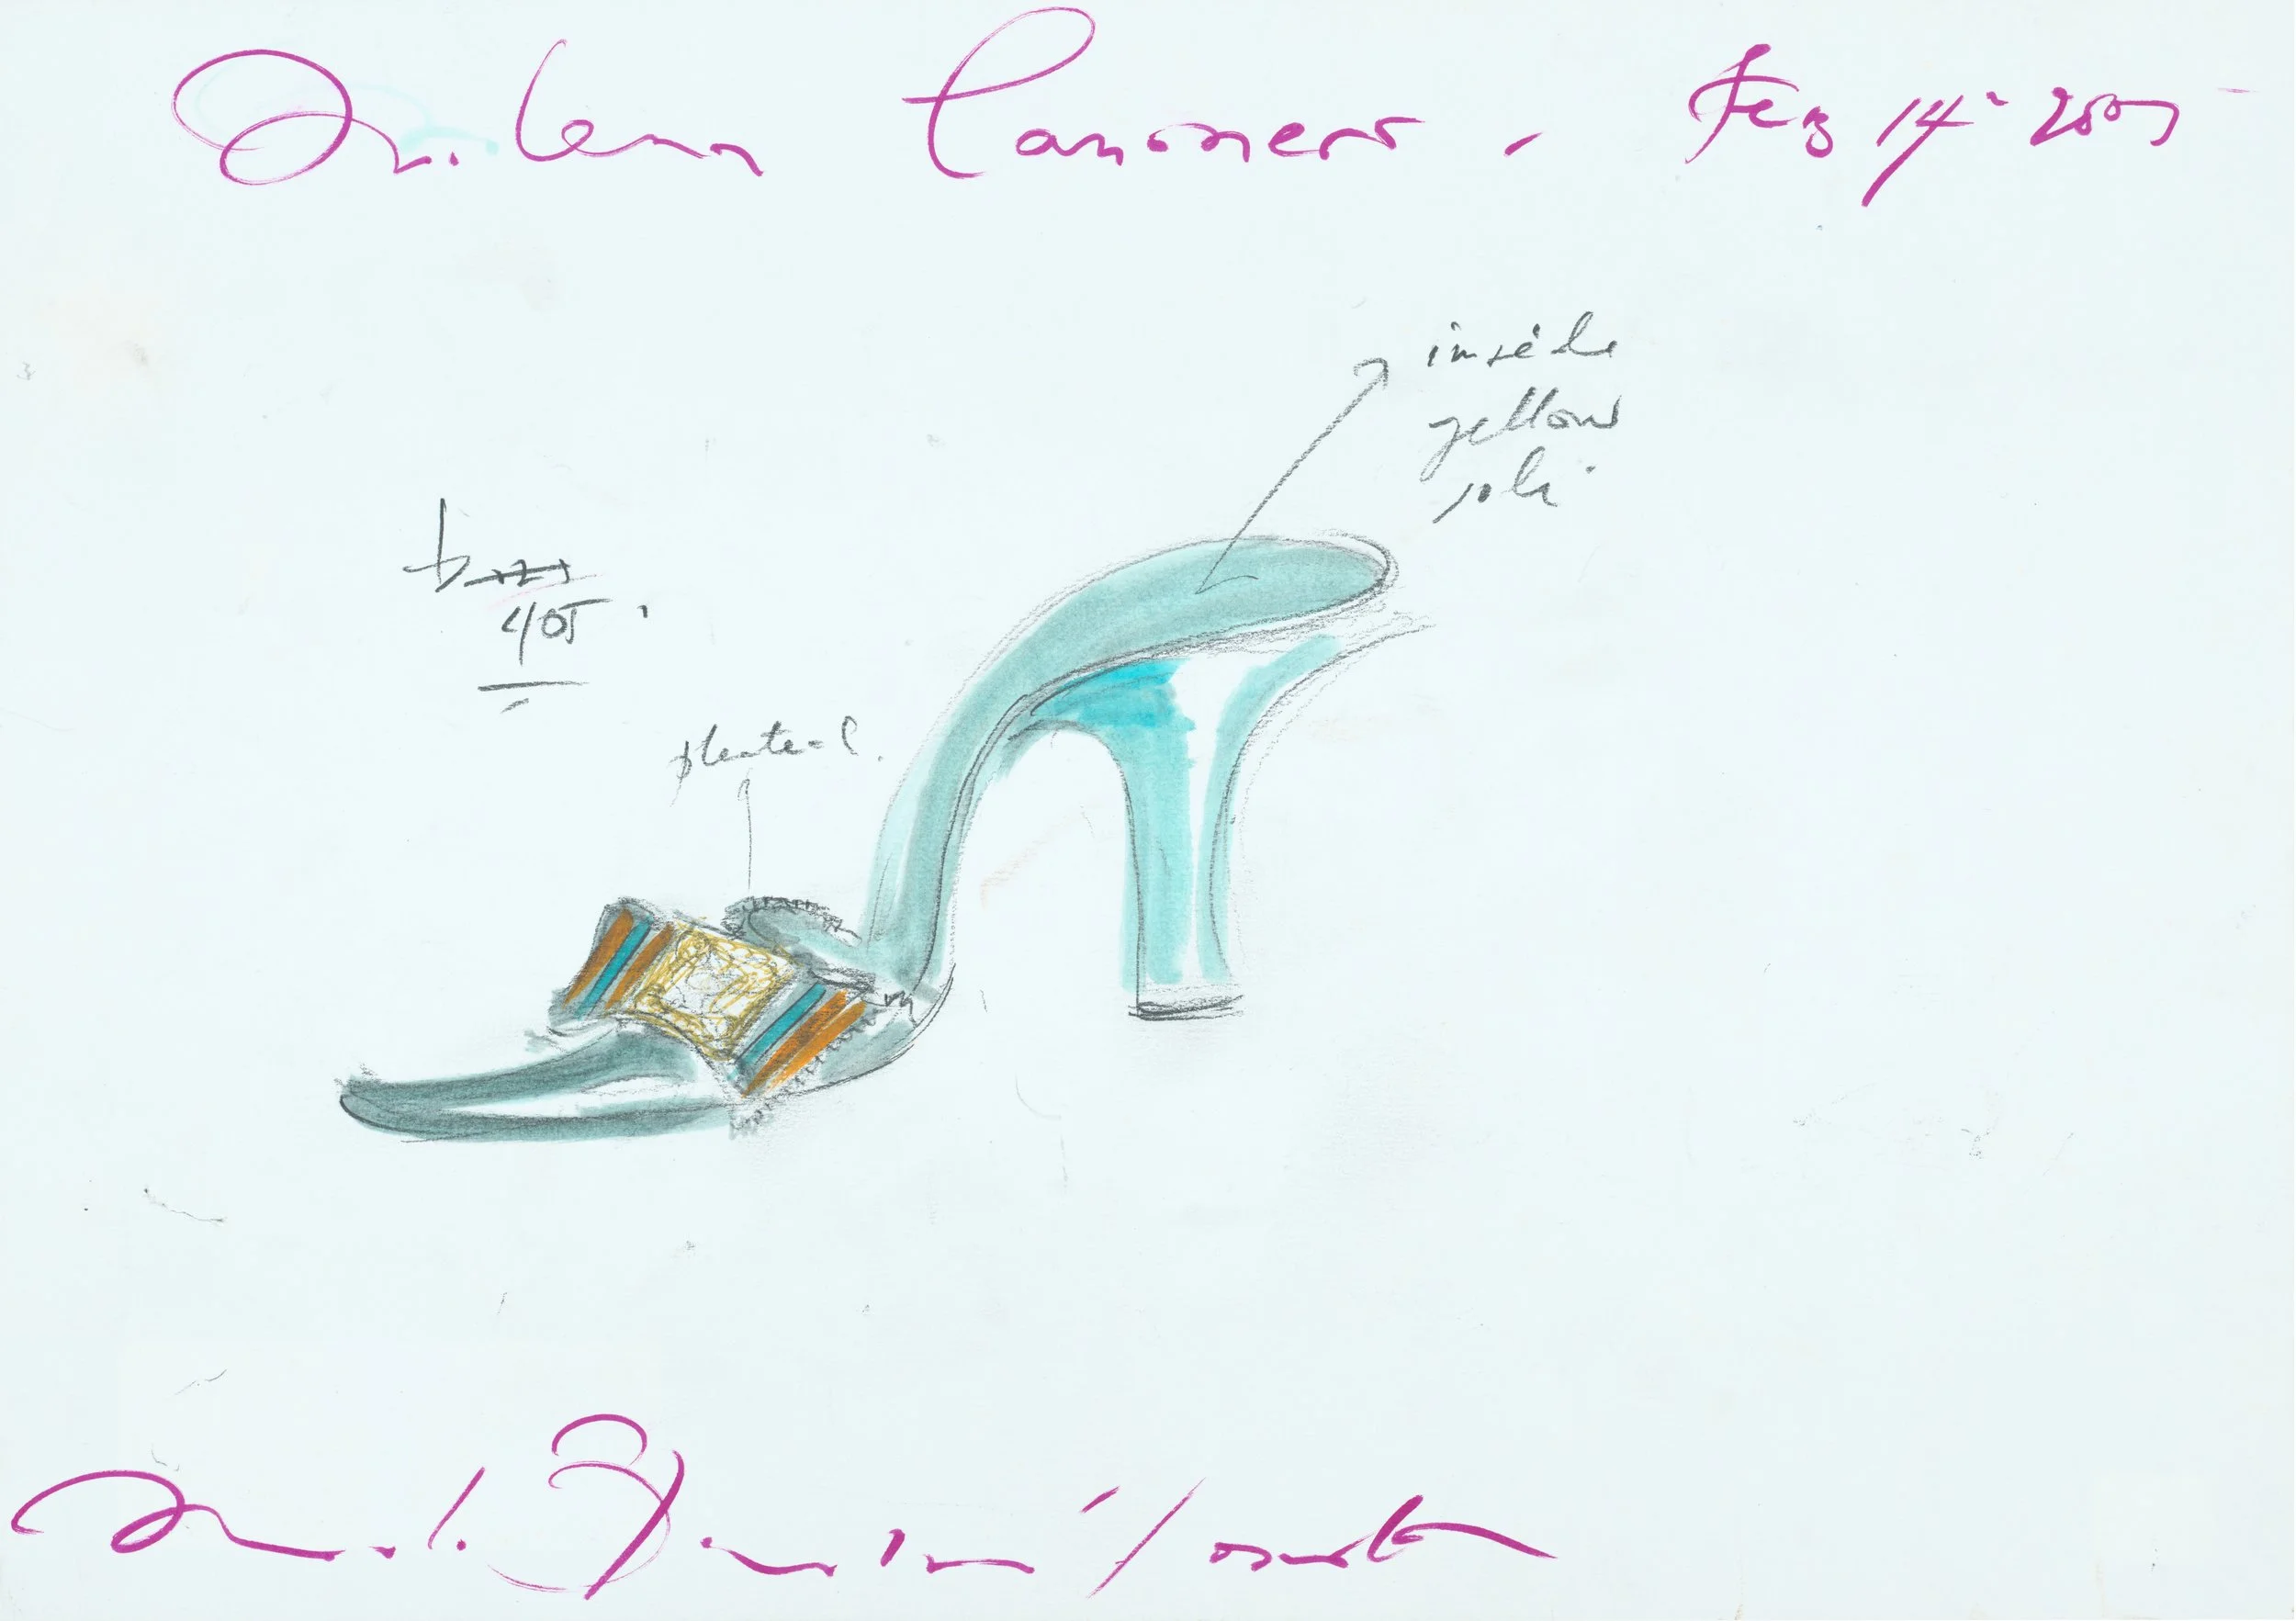 Milena Canonero - Feb 14 2005
inside
yellow
405.
pleated.
Manolo Blahnik / London